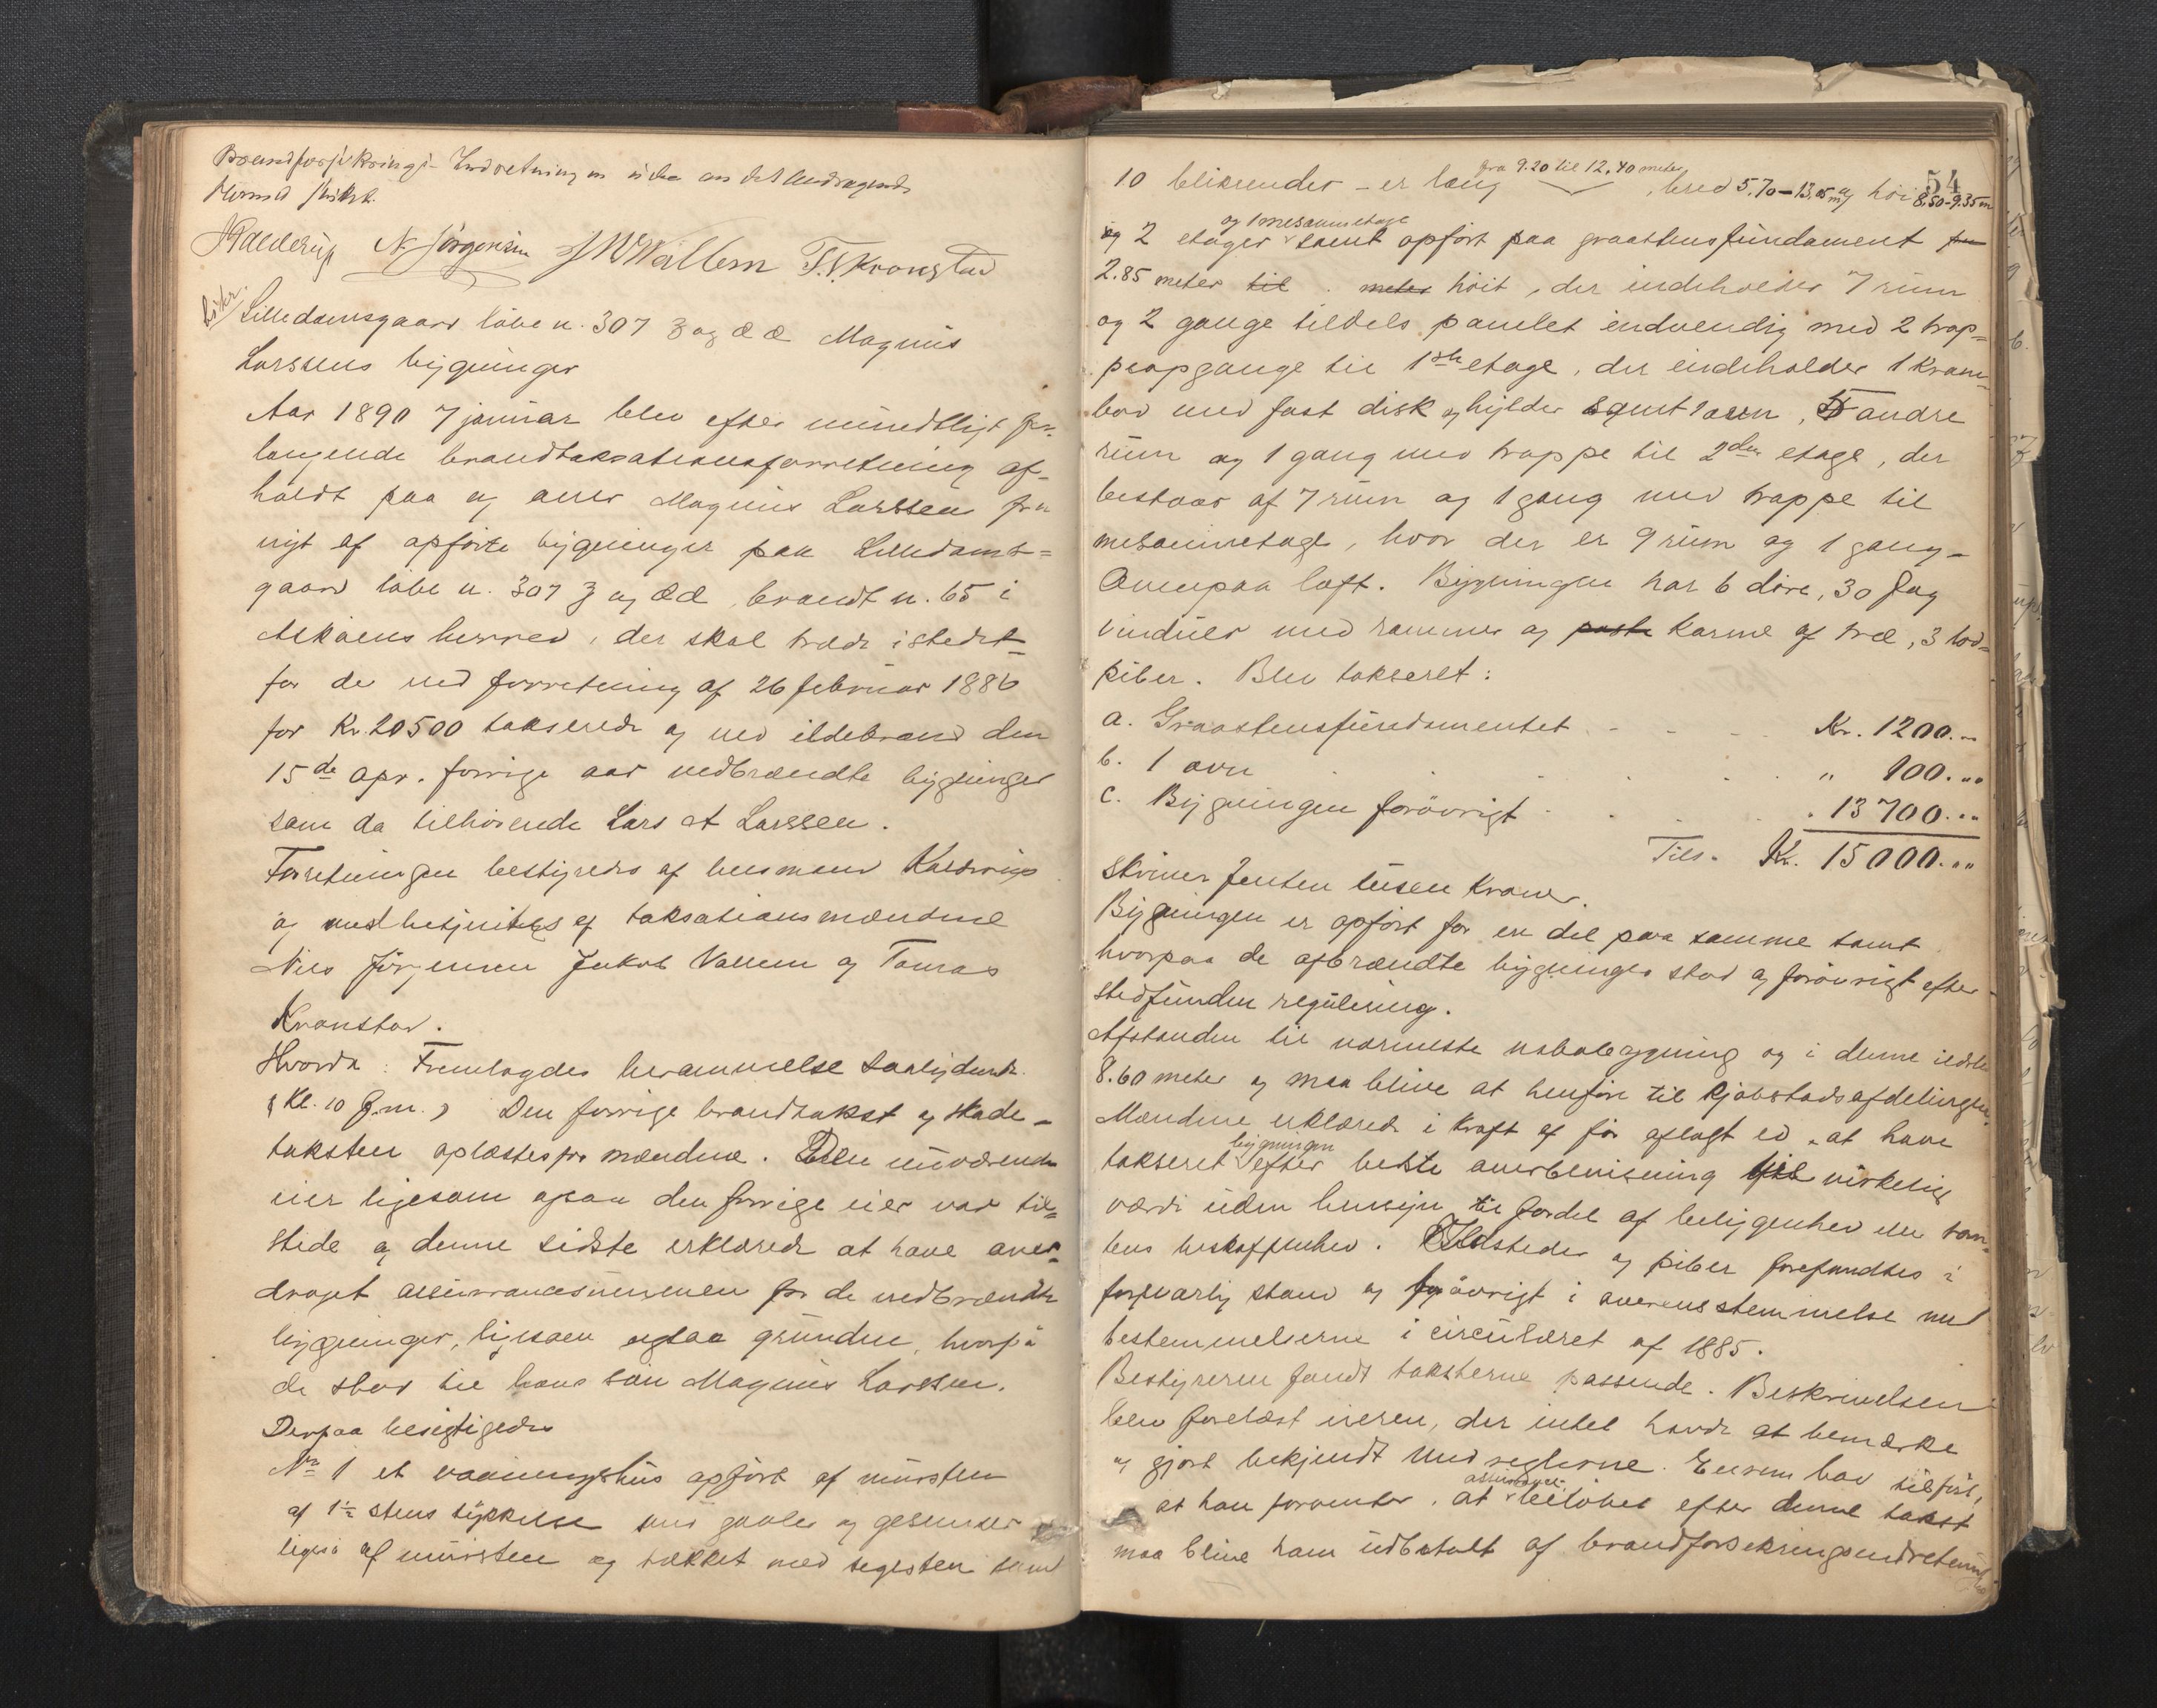 Brandforsikrings-Indretningen uden an det Andragende
Kalderup N. Jörgensen J W Wallem T. T. Kronstad
Lilledamsgaard löbe n. 307 z og æ æ Magnus
Larssens bygninger
Aar 1890 7 januar blev efter mundtligt for-
langende brandtaksationsforretning af-
holdt paa og over Magnus Larssen fra
nyt af opförte bygninger paa Lilledams-
gaard löbe n. 307 z og æ æ, brandt n. 65 i
Askøens herred, der skal træde istedet-
for de ved forretning af 26 februar 1886
for Kr. 20500 takserede og ved ildebrand den
15de apr. forrige aar nedbrændte bygninger
som da tilhörende Lars A Larssen.
Forretningen bestyredes af lensmand Kalderup
og medbetjentes af taksationsmændene
Nils Jörgensen Jakob Vallem og Tomas
Kronstad.
Hvorda: Fremlagdes berammelse saalydende
(Kl. 10 F.m.) Den forrige brandtakst og skade-
taksten oplæstes for mændene. Den nuværende
eier ligesom ogsaa den forrige eier var til-
stede og denne sidste erklærede at have over-
draget assurancesummen for de nedbrændte
bygninger, ligesom ogsaa grunden, hvorpå
de stod til hans sön Magnus Larssen.
Derpaa besigtigedes
No 1 et vaaningshus opfört af mursten
af 1½ stens tykkelse med gavler og gesimser
ligeså af mursten og tækket med tegelsten samt
54
10 blikrender - er lang fra 9.20 til 12.40 meter, bred 5.70-13,05 m og höi 8,50-9.35 m
og 2 etager og 1 mesaninetage samt opfört paa graastensfundament fra
2.85 meter til meter höit, der indeholder 7 rum
og 2 gange tildels panelet indvendig med 2 trap-
peopgange til 1ste etage, der indeholder 1 kram-
bod med fast disk og hylder samt 1 ovn, 5 andre
rum og 1 gang med trappe til 2den etage, der
bestaar af 7 rum og 1 gang med trappe til
mesaninetage, hvor der er 9 rum og 1 gang-
Ovenpaa loft. Bygningen har 6 döre, 30 fag
vinduer med rammer og poste karme af træ, 3 lod-
piber. Blev takseret:
a. Graastensfundamentet Kr. 1200...
b. 1 ovn " 100...
c. Bygningen forövrigt 13700...
Tils. Kr. 15000...
skriver femten tusen kroner.
Bygningen er opfört for en del paa samme tomt
hvorpaa de afbrændte bygninger stod og forövrigt efter
stedfunden regulering.
Afstanden til nærmeste nabobygning og i denne ildsted
8.60 meter og maa blive at henföre til Kjöbstadsafdelingen.
Mændene erklærede i kraft af för aflagt ed, at have
takseret bygningen efter bedste overbevisning til virkelig
værdi uden hensyn til fordel af beliggenhed eller tom-
tens beskaffenhed. Ildsteder og piber forefandtes i
forsvarlig stand og forövrigt i overensstemmelse med
bestemmelserne i circulæret af 1885.
Bestyreren fandt taksterne passende. Beskrivelsen
blev forelæst eieren, der intet havde at bemærke
og gjort bekjendt med reglerne. Eieren bad tilfört,
at han forventer, at assurance- belöbet efter denne takst
maa blive ham udbetalt af brandforsikringsindretningen